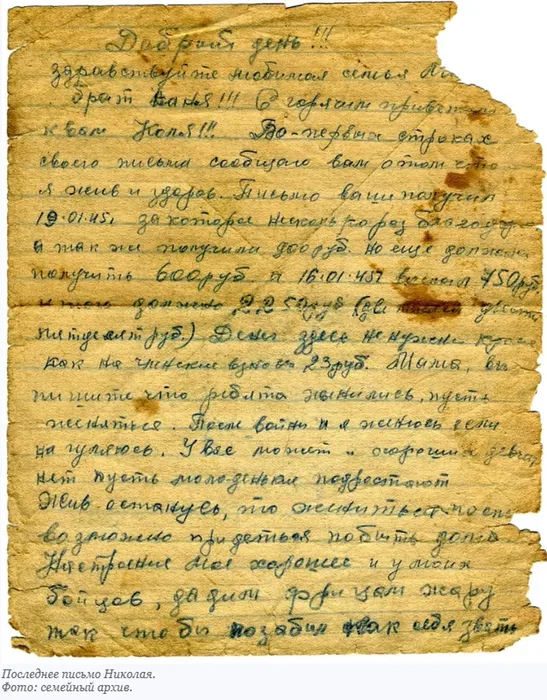 Добрый день!!!
здравствуйте любимая семья
брат Ваня!!! С горячим приветом
к вам Коля!!! Во-первых строках
своего письма сообщаю вам о том что
я жив и здоров. Письмо ваше получил
19.01.45г за которое несколько раз
а так же получили 900 руб. но еще должны
получить 600 руб. а 16.01.45г выслал 750 руб
итого должно 2250 руб
пятдесят руб.) Денги здесь не нужны кроме
как на членские взносы 23 руб. Мама, вы
пишите что ребята женились, пусть
женяться. После войны и я женюсь если
на гуляюсь. У вас может и хороших девчат
нет пусть молоденькая подростают
Жив останусь, то жениться
возможно придеться побыть дома
Настроение мое хорошее и у моих
бойцов, дадим фрицам жару
так чтобы позабыл как себя звать
Последнее письмо Николая.
Фото: семейный архив.